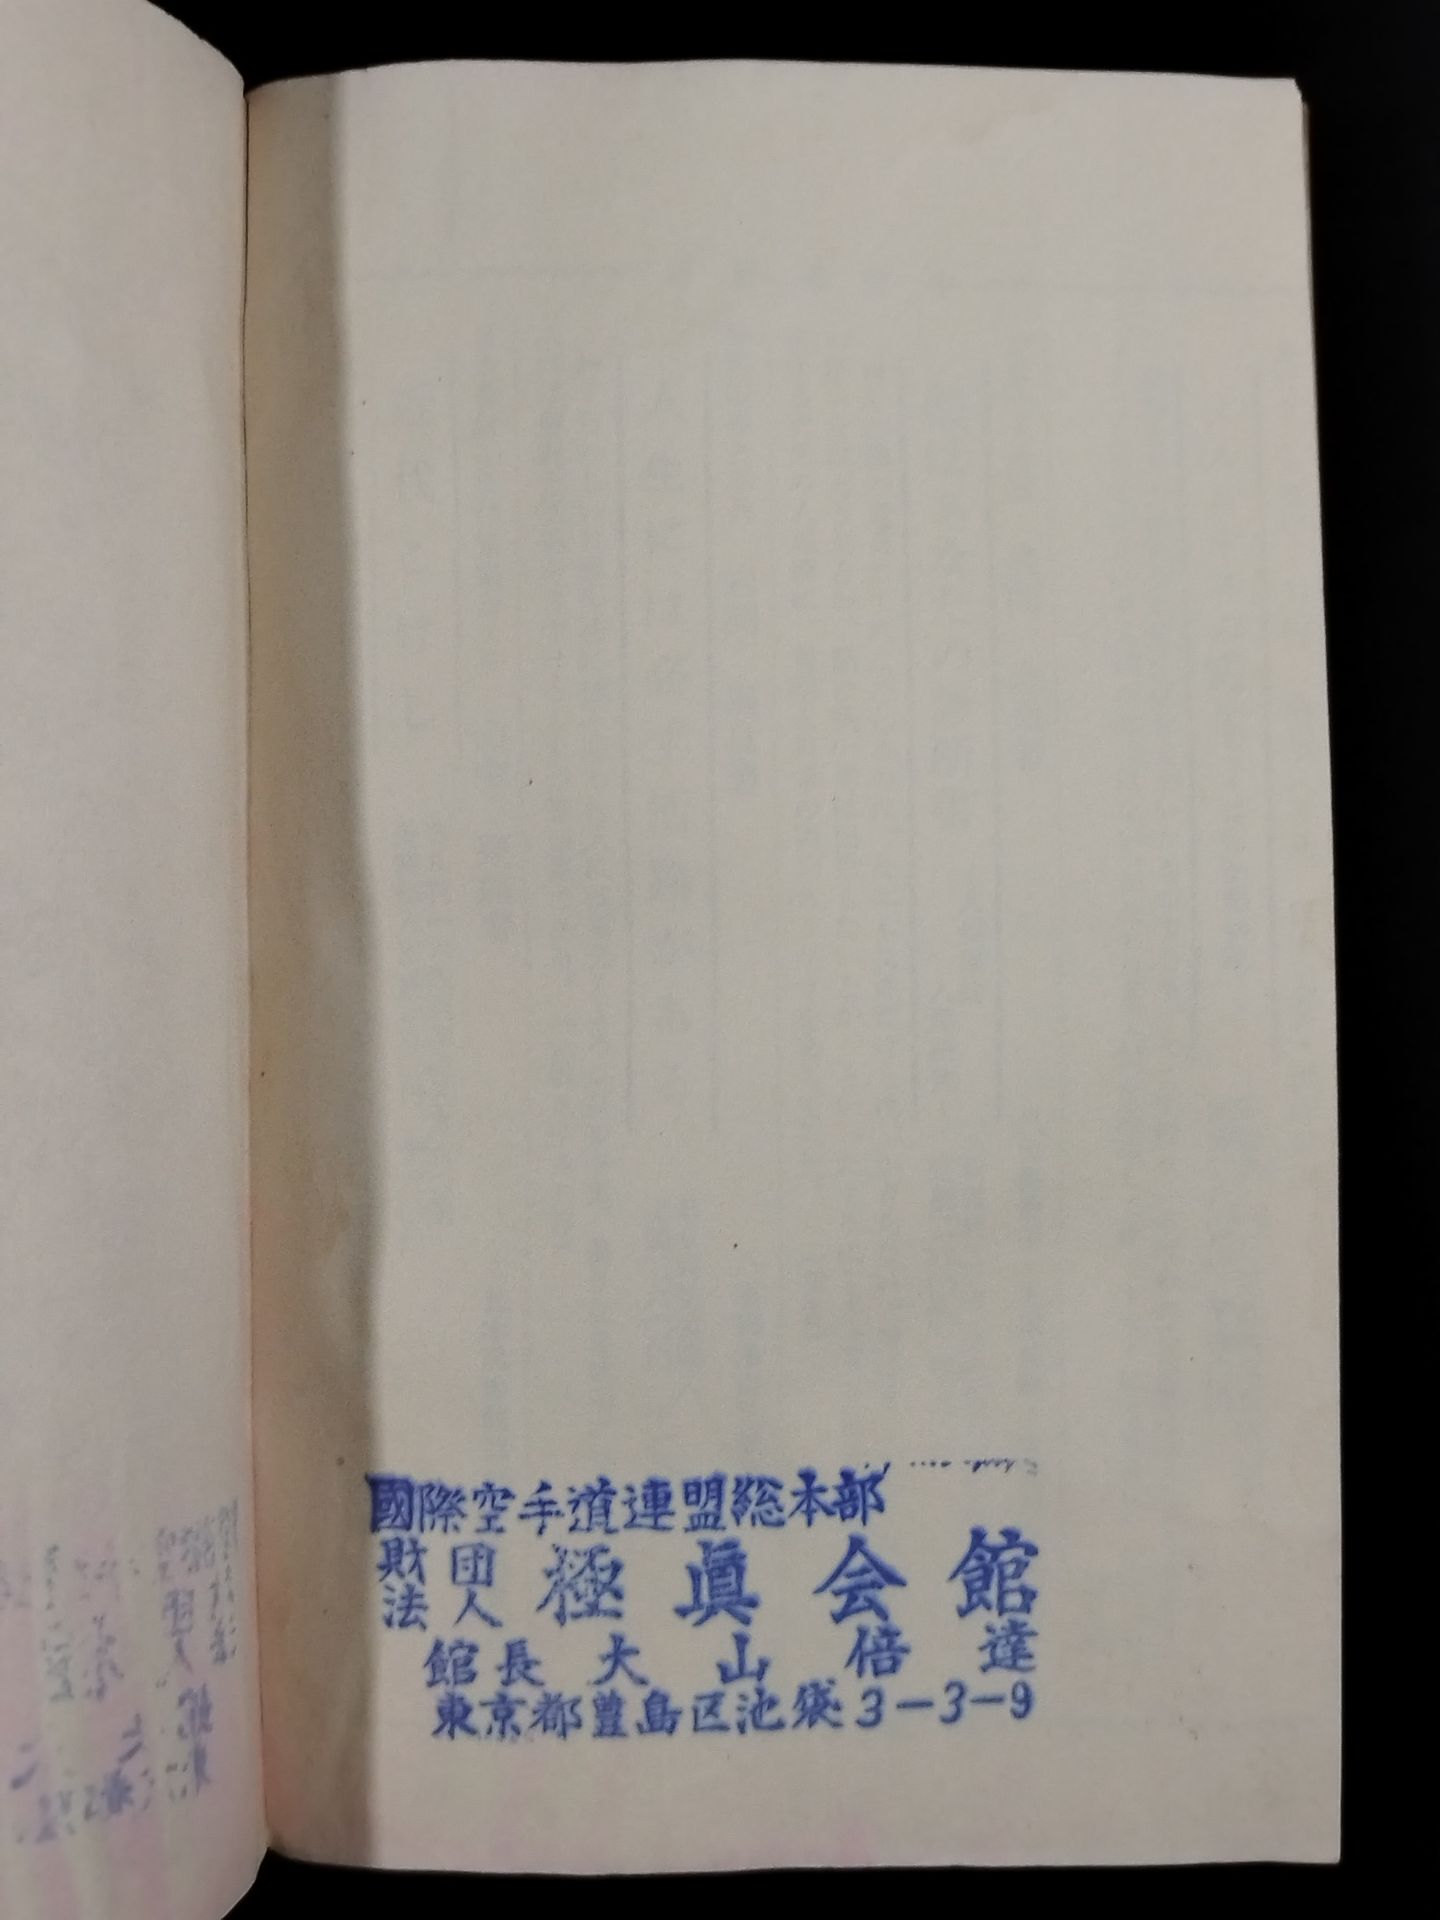 國際空手道連盟総本部
財団法人 極眞会館
館長 大山倍達
東京都豊島区池袋3-3-9